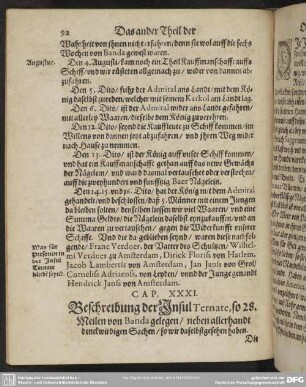 92 Das ander Theil der
Warheit von jhnen nicht erfahren / denn sie wol auff die sechs
Wochen von Banda gewest waren.
Augustus. Den 4. Augusti / kam noch ein Theil Kauffmanschafft auffs
Schiff / vnd wir rüsteten allgemach zu / wider von dannen ab-
zufahren.
Den 5. Dito / fuhr der Admiral ans Landt / mit dem Kö-
nig daselbst zureden / welcher mit seinem Karkol am Landt lag.
Den 6. Dito / ist der Admiral wider ans Landt gefahren /
mit allerley Waaren / dieselbe dem König zuverehren.
Den 12. Dito / seynd die Kauffleute zu Schiff kommen / im
Willens von dannen jetzt abzufahren / vnd jhren Weg wider
nach Hause zu nemmen.
Den 13. Dito / ist der König auff vnser Schiff kommen /
vnd hat ein Kauffmanschafft gethan auff das neue Gewächs
der Nägelein / vnd ward das mal vertauschet oder verstochen /
auff die zweyhundert vnd fünfftzig Baar Nägelein.
Den 14. 15. vnd 16. Dito / hat der König mit dem Admiral
gehandelt / vnd beschlossen / daß 5. Männer mit einem Jungen
da bleiben solten / denselben liessen wir viel Waaren / vnd eine
Summa Geldes / die Nägelein daselbst einzukauffen / vnd an
die Waaren zu vertauschen / gegen die Widerkunfft vnserer
Schiffe. Vnd die da geblieben seynd / waren diese nachfol-
Was für
personen in
der Insul
Ternate
blieb seynd.
gende / Franz Verdoes / der Vatter des Schultzen / Wilhel-
mi Verdoes zu Amsterdam, Dirick Floris von Harlem,
Jacob Lambertsz von Amsterdam, Jan Jansz von Grol /
Cornelisz Adriaensz. von Leyden / vnnd der Junge genandt
Hendrick Jansz von Amsterdam.
CAP. XXXI.
Beschreibung der Insul Ternate, so 28.
Meilen von Banda gelegen / neben allerhandt
denckwidigen Sachen / so wir daselbst gesehen haben.
Die